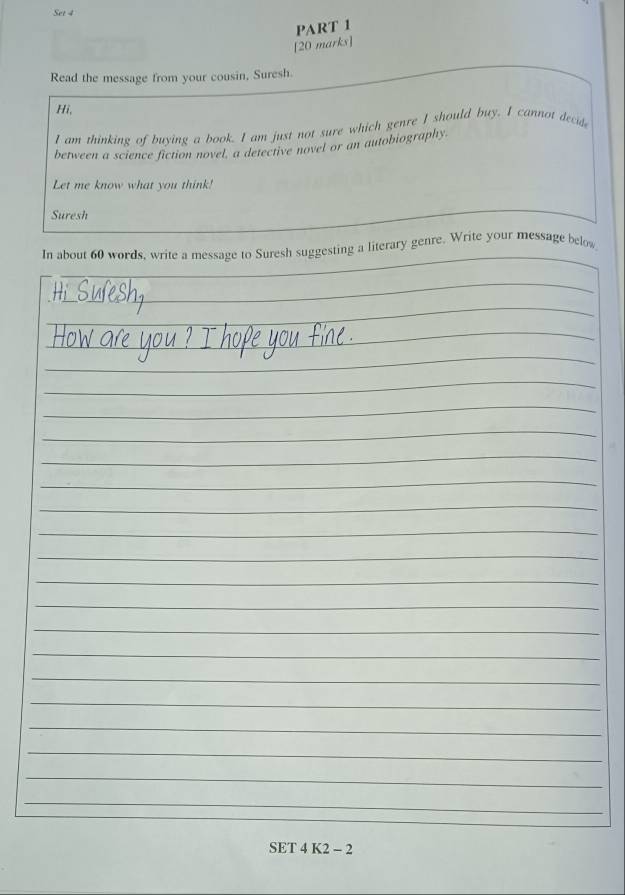 Set 4
PART 1
[20 marks]
Read the message from your cousin, Suresh.
Hi,
I am thinking of buying a book. I am just not sure which genre I should buy. I cannot decide
between a science fiction novel, a detective novel or an autobiography.
Let me know what you think!
Suresh
In about 60 words, write a message to Suresh suggesting a literary genre. Write your message below.
Hi Suresh,
How are you? I hope you fine.
SET 4 K2 – 2